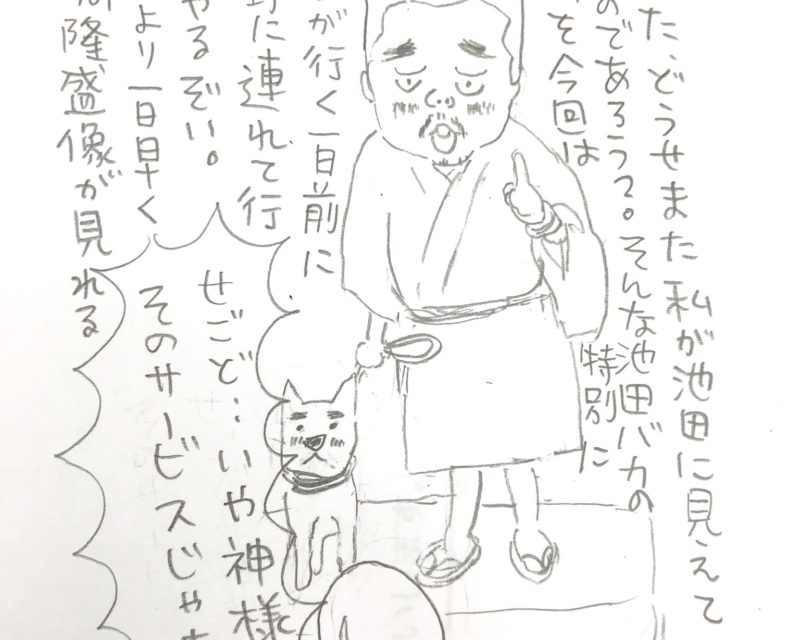 た、どうせまた私が池田に見えて
のであろう?。そんな池田バカの
を今回は特別に
が行く一日前に
に連れて行
やるぞい。
より一日早く
隆盛像が見れる
せごど‥いや神様
そのサービスじゃ